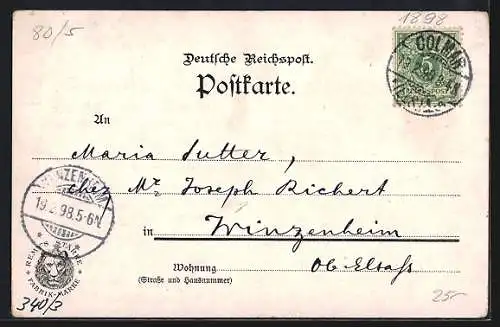 80/5
1898
Deutsche Reichspost.
Postkarte.
COLMAR
An
Maria Sutter,
chez Mr Joseph Richert
in Winzenheim
Wohnung
(Straße und Hausnummer)
Ob. Elsaß
WINZENHEIM
98.5-6N.
FABRIK-MARKE
340/3
25-